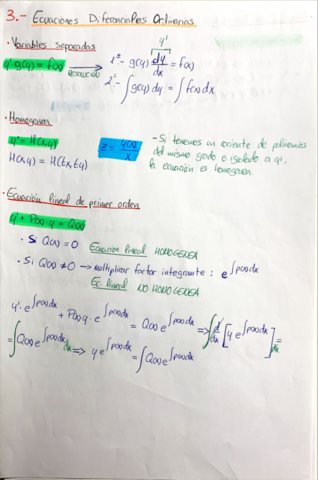 3.- Ecuaciones Diferenciales Ordinarias
· Variables separadas
y'
y' g(y) = f(x) → RESOLUCIÓN 1º- g(y) dy/dx = f(x)
2º- ∫g(y) dy = ∫f(x) dx
· Homogenea
y' = H(x,y) z = y(x)/x - Si tenemos un cociente de polinomios
H(x,y) = H(tx,ty) del mismo grado e igualado a y',
la ecuación es homogenea.
· Ecuación lineal de primer orden
y' + P(x)·y = Q(x)
· Si Q(x) = 0 Ecuacion lineal HOMOGENEA
· Si Q(x) ≠ 0 → multiplicar factor integrante: e^∫p(x)dx
Ec. lineal NO HOMOGENEA
y'·e^∫p(x)dx + P(x)y·e^∫p(x)dx = Q(x)e^∫p(x)dx => ∫d/dx [y e^∫p(x)dx] dx =
= ∫Q(x)e^∫p(x)dx dx => y e^∫p(x)dx = ∫Q(x)e^∫p(x)dx